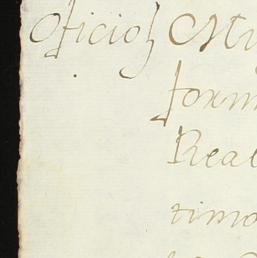 Oficio Mu
form
Real
timo